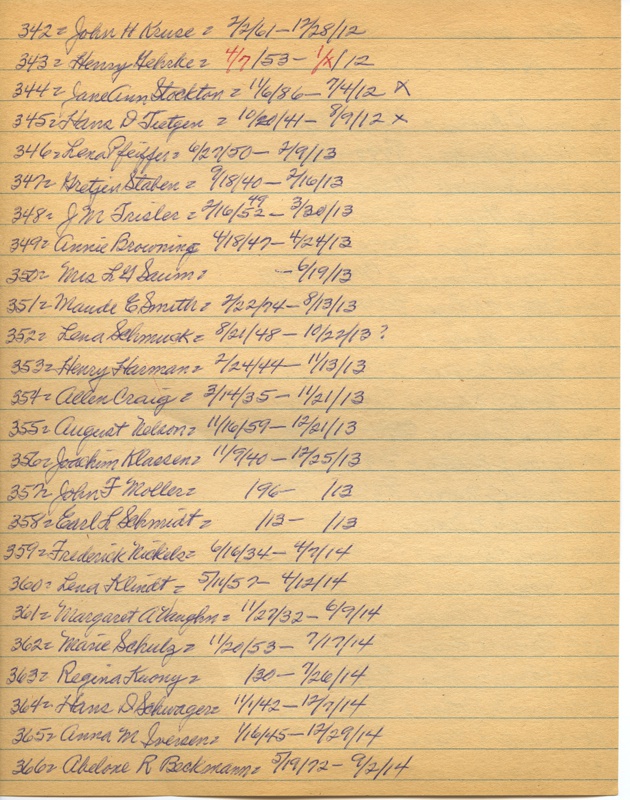 342= John H Kruse = 2/2/61-12/28/12
343= Henry Gehrke = 4/7/53- 1/x/12
344= Jane Ann Stockton = 11/6/86- 7/4/12 x
345= Hans D Tietgen = 10/20/41- 8/9/12 x
346= Lena Pfeiffer = 6/27/50- 2/9/13
347= Gretjen Staben = 9/18/40- 2/16/13
348= J M Trisler = 2/16/52 49 - 3/30/13
349= Annie Browning 4/18/47- 4/24/13
350= Mrs L G Saum = - 6/19/13
351= Maude E Smith = 2/22/74- 8/13/13
352= Lena Schmuck = 8/21/48- 10/22/13 ?
353= Henry Harman = 2/24/44- 11/13/13
354= Allen Craig = 3/14/35- 11/21/13
355= August Nelson = 11/16/59- 12/21/13
356= Joachim Klassen = 11/9/40- 12/25/13
357= John F Moller = /96- /13
358= Earl L Schmidt = /13- /13
359= Frederick Nickels = 6/16/34- 4/7/14
360= Lena Klindt = 5/1/57- 4/12/14
361= Margaret A Vaughn = 11/27/32- 6/9/14
362= Marie Schulz = 11/20/53- 7/17/14
363= Regina Kuony = /30- 7/26/14
364= Hans D Schwager = 11/1/42- 12/7/14
365= Anna M Iversen = 1/16/45- 12/29/14
366= Abelone R Beckmann = 5/19/72- 9/2/14